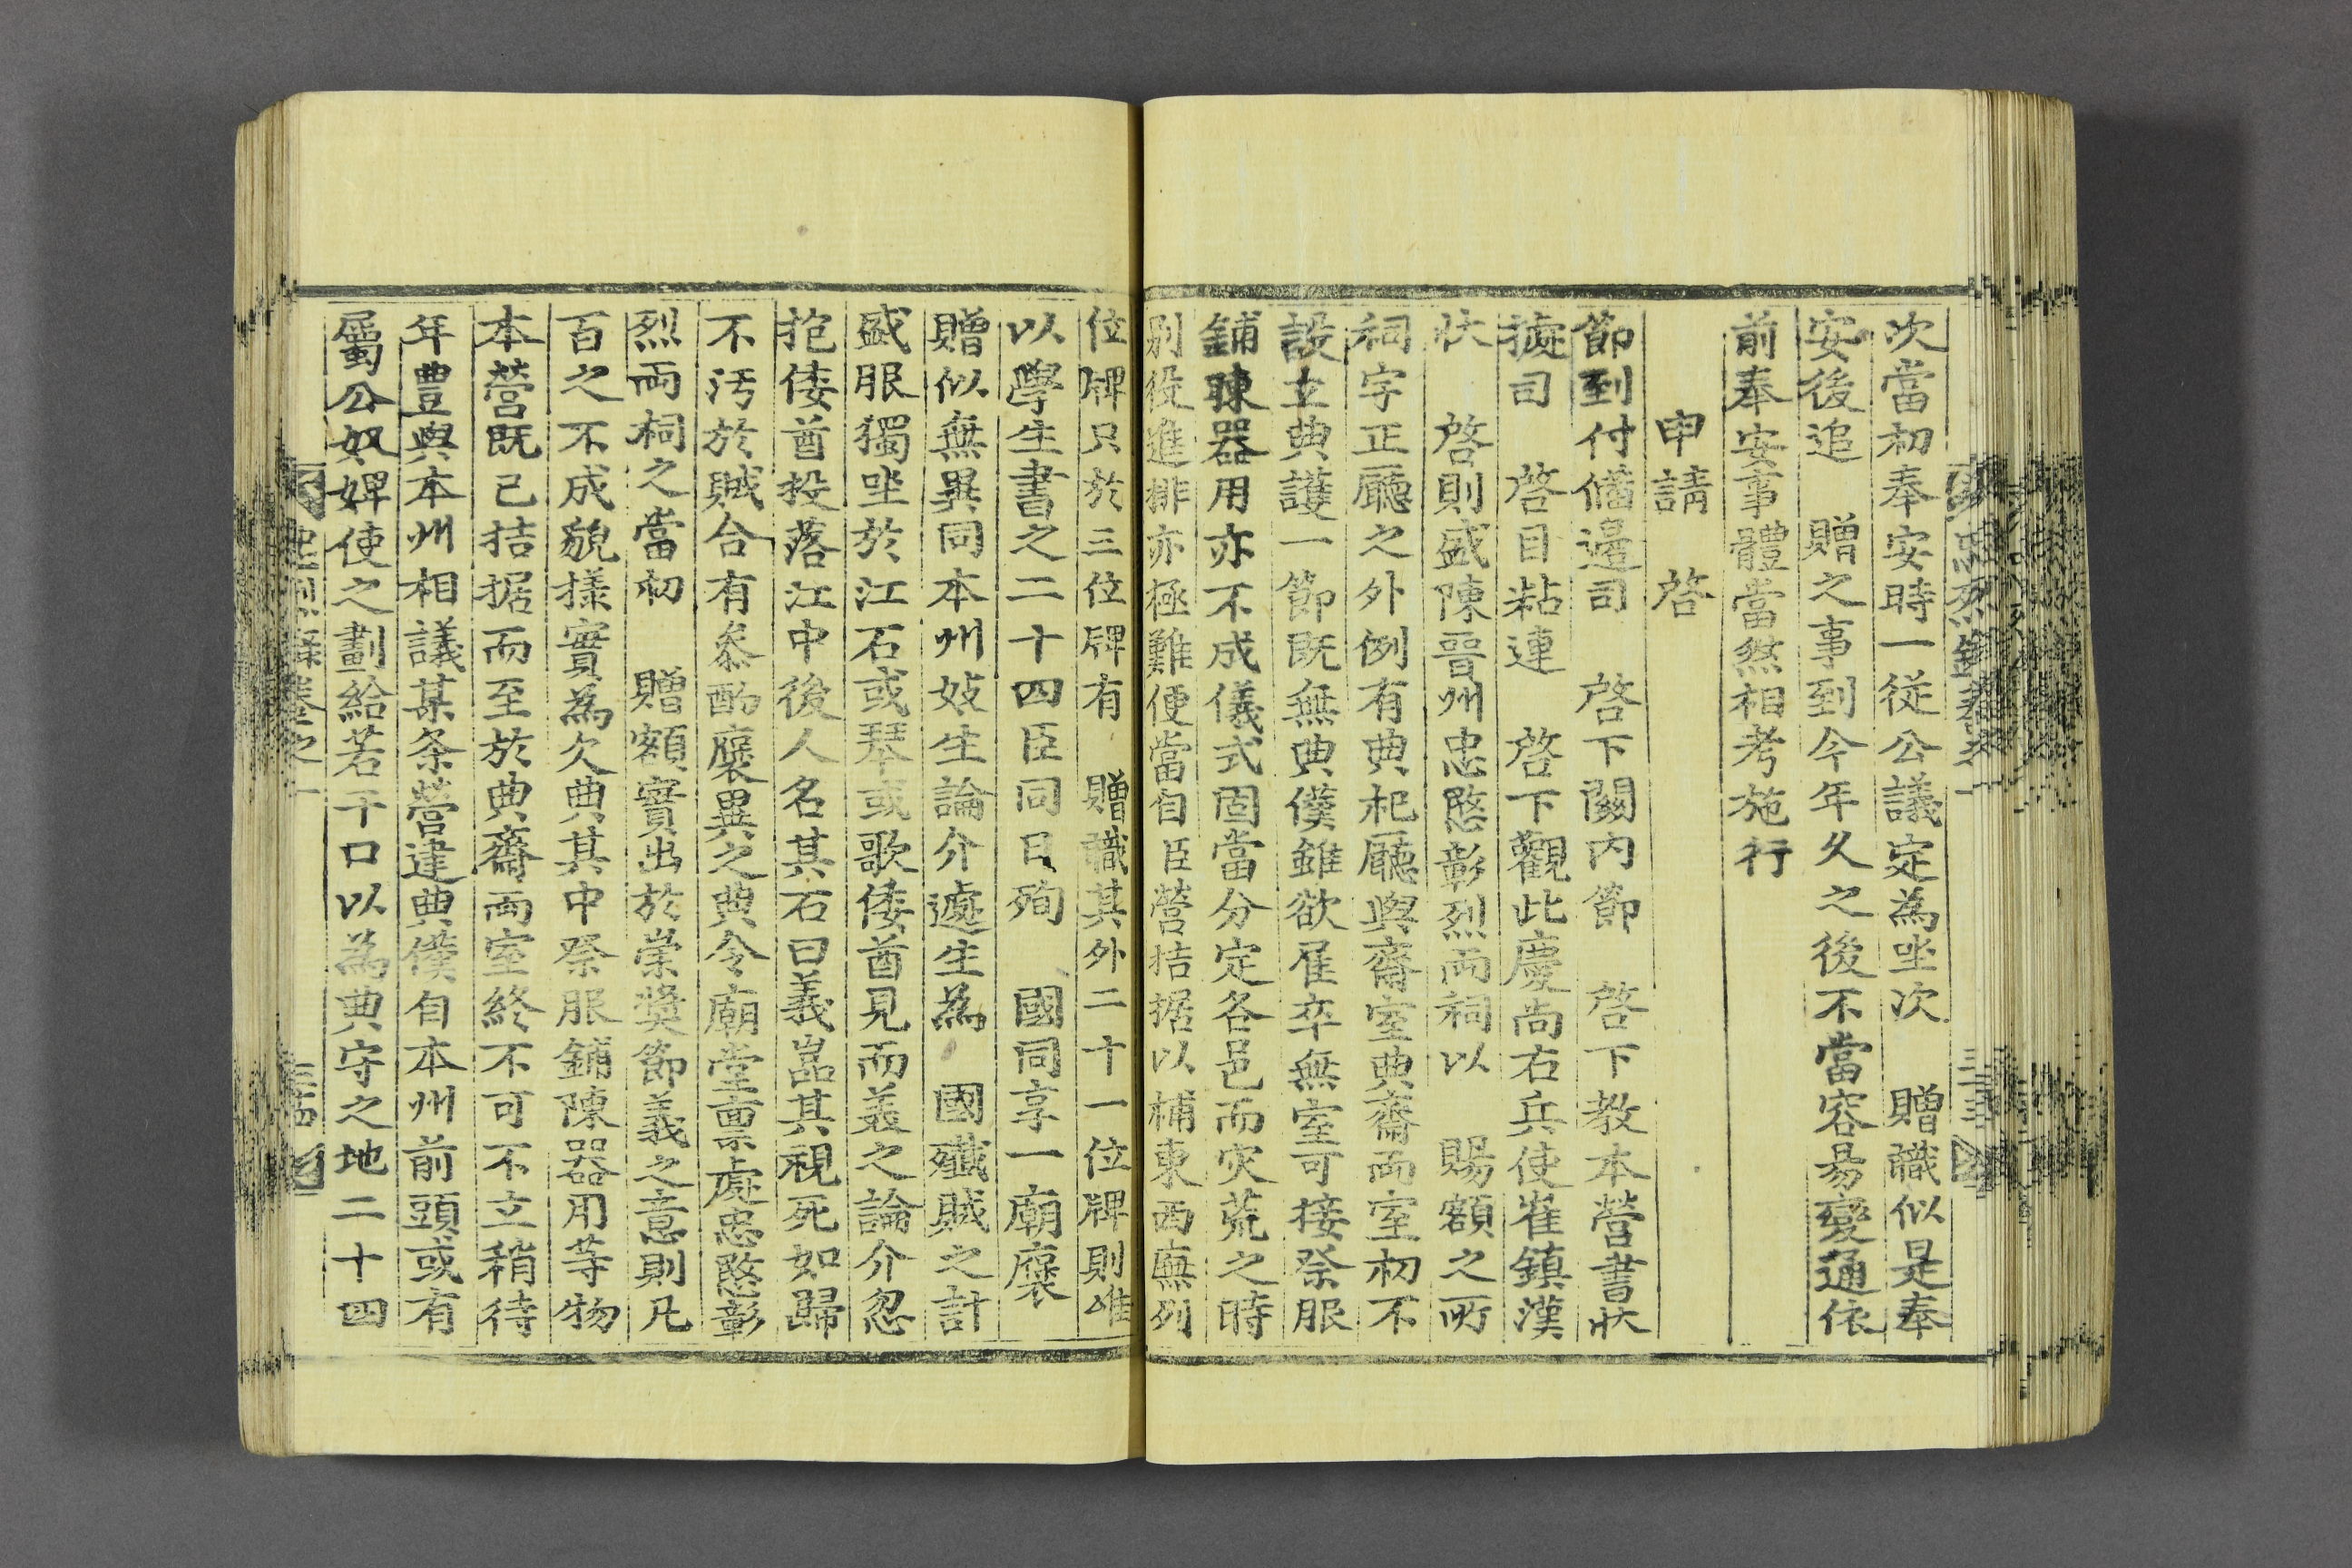 次當初奉安時一從公議定為坐次 贈職似是奉
安後追 贈之事到今年久之後不當容易變通依
前奉安事體當然相考施行
申請 啓
節到付備邊司 啓下關內節 啓下教本營書狀
據司 啓目粘連 啓下觀此慶尚右兵使崔鎮漢
狀 啓則盛陳晉州忠愍彰烈兩祠以 賜額之所
祠宇正廳之外例有典祀廳與齋室典齋兩室初不
設立典護一節既無典僕雖欲雇卒無室可接祭服
鋪陳器用亦不成儀式固當分定各邑而灾荒之時
別役進排亦極難便當自臣營拮据以補東西廡列
位牌只於三位牌有 贈職其外二十一位牌則唯
以學生書之二十四臣同日殉 國同享一廟褒
贈似無異同本州妓生論介處生為 國殲賊之計
盛服獨坐於江石或琴或歌倭酋見而義之論介忽
抱倭酋投落江中後人名其石曰義嵓其視死如歸
不汚於賊合有叅酌褒異之典令廟堂稟處忠愍彰
烈兩祠之當初 贈額實出於崇奬節義之意則凡
百之不成貌樣實為欠典其中祭服鋪陳器用等物
本營既已拮据而至於典齋兩室終不可不立稍待
年豊與本州相議某条營建典僕自本州前頭或有
屬公奴婢使之劃給若干口以為典守之地二十四